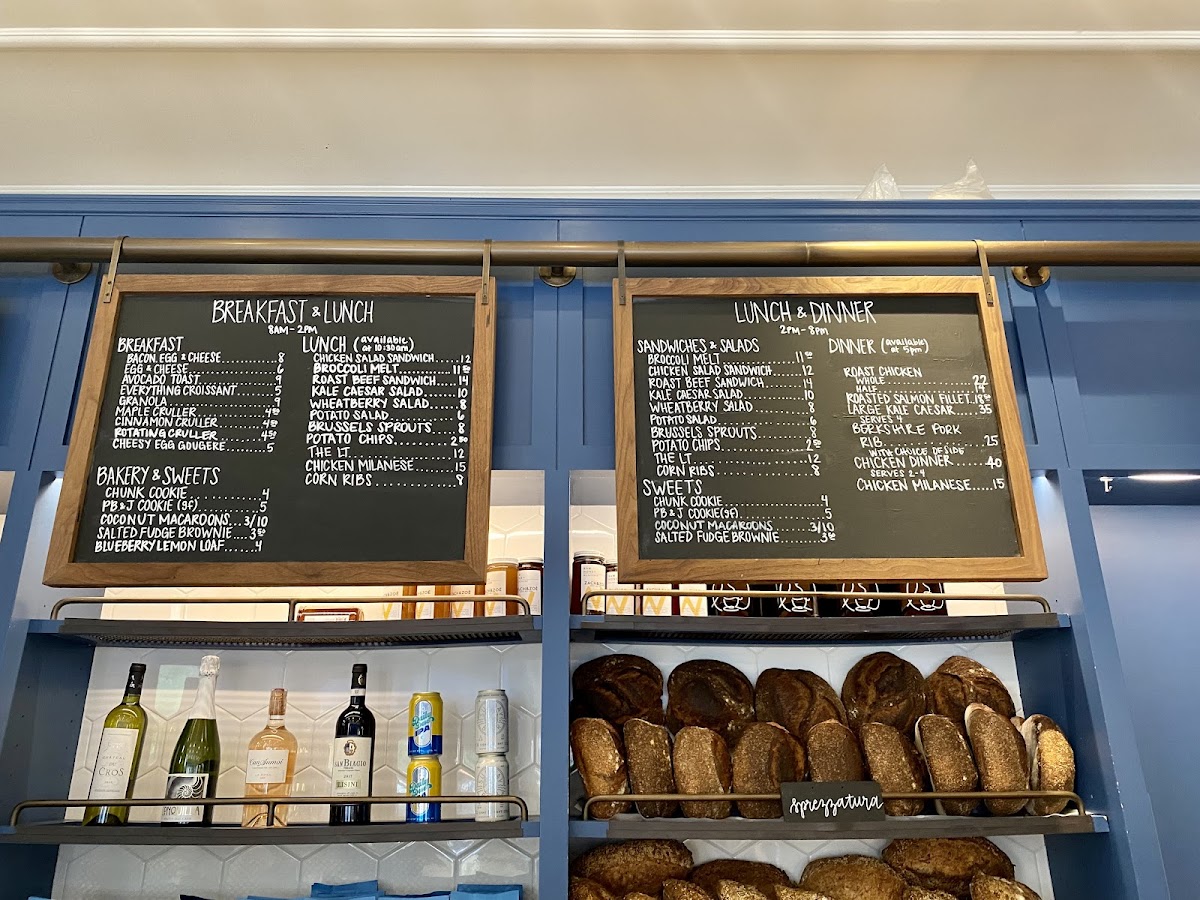 BREAKFAST & LUNCH
8AM-2PM
BREAKFAST
BACON, EGG & CHEESE..........8
EGG & CHEESE..........6
AVOCADO TOAST..........9
EVERYTHING CROISSANT 5
GRANOLA..........9
MAPLE CRULLER..........4⁵⁰
CINNAMON CRULLER..........4⁵⁰
ROTATING CRULLER..........4⁵⁰
CHEESY EGG GOUGERE..........5
BAKERY & SWEETS
CHUNK COOKIE..........4
PB & J COOKIE (gf)..........5
COCONUT MACAROONS...3/10
SALTED FUDGE BROWNIE....3⁵⁰
BLUEBERRY LEMON LOAF......4
LUNCH (available at 10:30am)
CHICKEN SALAD SANDWICH.....12
BROCCOLI MELT..........11⁵⁰
ROAST BEEF SANDWICH.....14
KALE CAESAR SALAD.....10
WHEATBERRY SALAD.....8
POTATO SALAD..........6
BRUSSELS SPROUTS.....8
POTATO CHIPS..........2⁵⁰
THE LT..........12
CHICKEN MILANESE..........15
CORN RIBS..........8
LUNCH & DINNER
2PM-8PM
SANDWICHES & SALADS
BROCCOLI MELT..........11⁵⁰
CHICKEN SALAD SANDWICH.....12
ROAST BEEF SANDWICH.....14
KALE CAESAR SALAD.....10
WHEATBERRY SALAD.....8
POTATO SALAD..........6
BRUSSELS SPROUTS..........8
POTATO CHIPS..........2⁵⁰
THE LT..........12
CORN RIBS..........8
SWEETS
CHUNK COOKIE..........4
PB & J COOKIE (gf)..........5
COCONUT MACAROONS.....3/10
SALTED FUDGE BROWNIE.....3⁵⁰
DINNER (available at 5pm)
ROAST CHICKEN
WHOLE..........22
HALF..........14
ROASTED SALMON FILLET..18⁵⁰
LARGE KALE CAESAR.....35
SERVES 4
BERKSHIRE PORK
RIB..........25
WITH CHOICE OF SIDE
CHICKEN DINNER.....40
SERVES 2-4
CHICKEN MILANESE.....15
CROS
SAN BIAGIO
IPA
sprezzatura